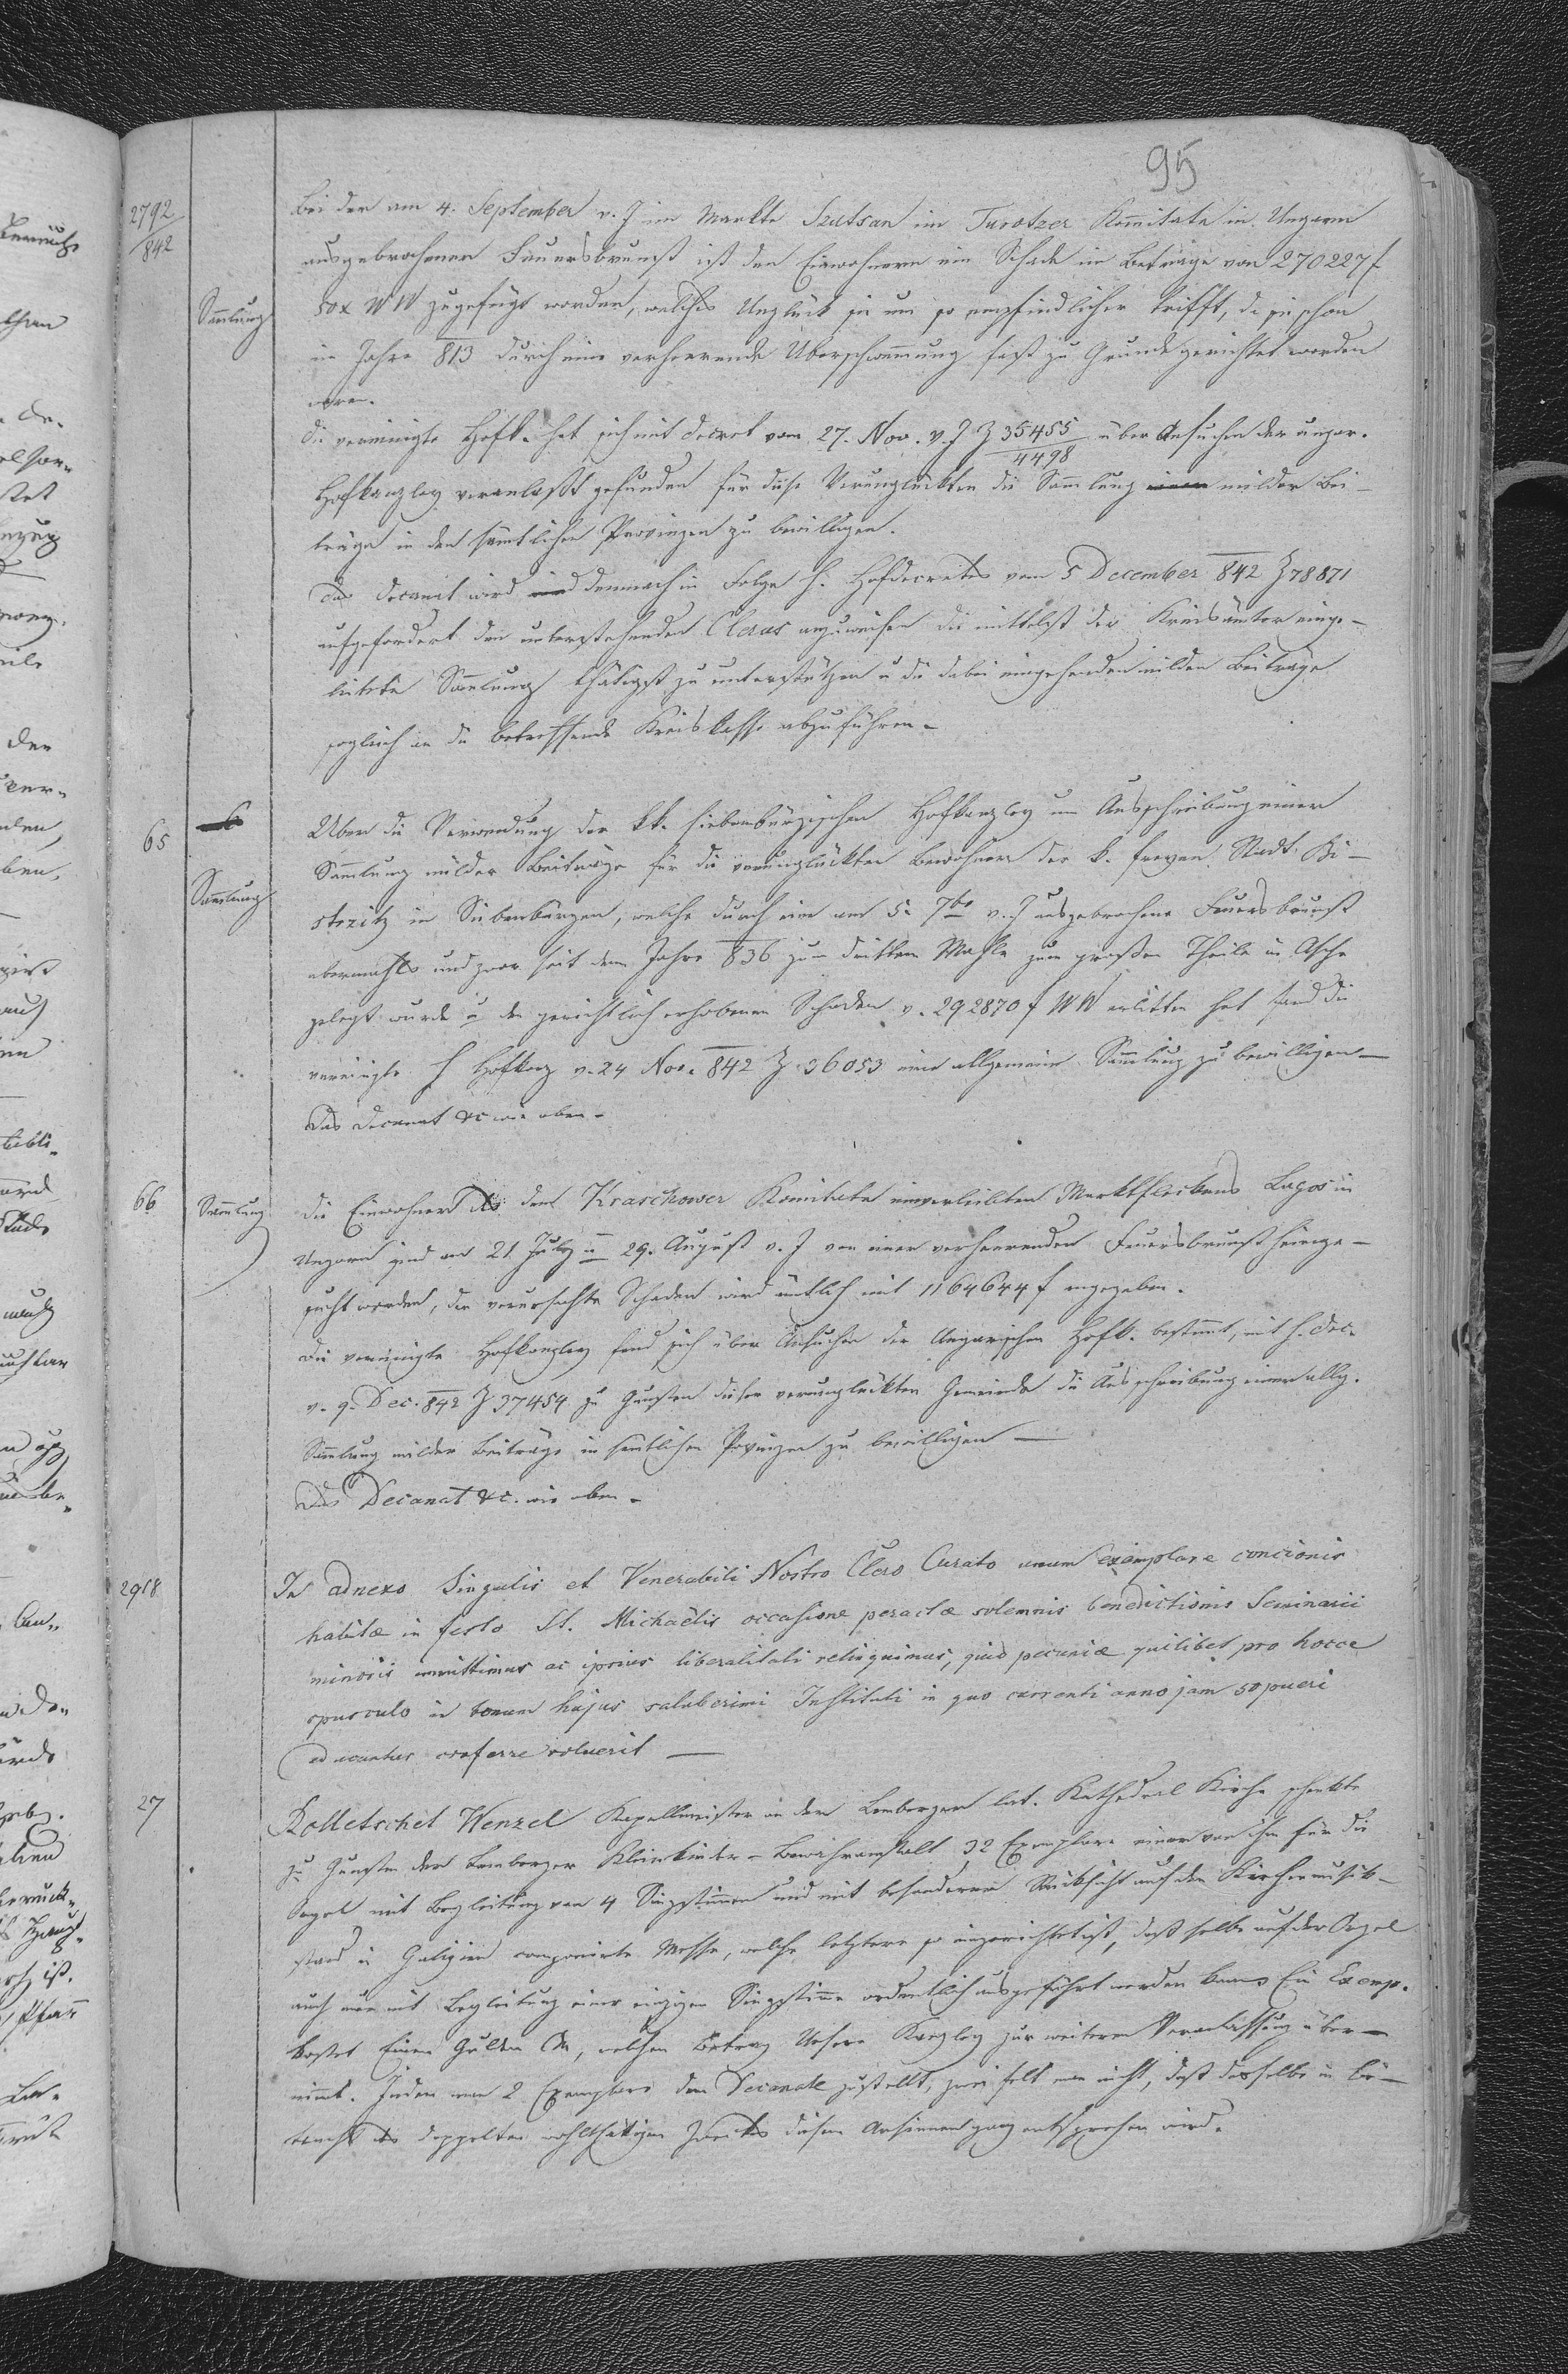 95
2792
842
Sammlung
Bei der am 4. September v. J im Markte Szutsan im Turotzer Komitate in Ungarn
ausgebrochenen Feuersbrunst ist den Einwohnern ein Schade im Betrage von 270227 f
50 x WW zugefügt worden, welches Unglück sie um so empfindlicher trifft, da sie schon
im Jahre 813 durch eine verheerende Überschwemmung fast zu Grunde gerichtet worden
waren.
Die vereinigte Hofk. hat sich mit Decret vom 27. Nov. v. J Z 35455/4498 über Ansuchen der ungar.
Hofkanzley veranlaßt gefunden für diese Verunglückten die Sammlung milder Bei-
träge in den sämtlichen Provinzen zu bewilligen.
Das Decanat wird demnach in Folge h. Hofdecretes vom 5 December 842 Z 78871
aufgefordert den unterstehenden Clerus anzuweisen die mittelst der Kreisämter einge-
leitete Sammlung thätigst zu unterstützen u die dabei eingehenden milden Beiträge
sogleich an die betreffende Kreiskasse abzuführen.
65
Sammlung
Über die Verwendung der kk. siebenbürgischen Hofkanzley um Ausschreibung einer
Sammlung milder Beiträge für die verunglückten Bewohner der k. freyen Stadt Bi-
stritz in Siebenbürgen, welche durch eine am 5. 7ber v. J ausgebrochene Feuersbrunst
abermahls und zwar seit dem Jahre 836 zum drittem Mahle zum großen Theile in Asche
gelegt wurde u den gerichtlich erhobenen Schaden v. 292870 f WW erlitten hat fand die
vereinigte h Hofkanz v. 24 Nov. 842 Z 36053 eine allgemeine Sammlung zu bewilligen —
Das Decanat &c wie oben.
66
Sammlung
Die Einwohner des dem Kraschower Komitate einverleibten Marktfleckens Lagos in
Ungarn sind am 21. July u 29. August v. J von einer verheerenden Feuersbrunst heimge-
sucht worden, der verursachte Schaden wird ämtlich mit 1164644 f angegeben.
Die vereinigte Hofkanzley fand sich über Ansuchen der Ungarischen Hofk. bestimmt, mit h. Dec.
v. 9. Dec. 842 Z 37454 zu Gunsten dieser verunglückten Gemeinde die Ausschreibung einer allg.
Sammlung milder Beiträge in sämtlichen Provinzen zu bewilligen —
Das Decanat &c. wie oben.
2918
In adnexo Singulis et Venerabili Nostro Clero Curato unum exemplare concionis
habitæ in festo St. Michaëlis occasione peractæ solemnis benedictionis Seminarii
minoris transmittimus ac ipsius liberalitati relinquimus, quid pecuniæ quilibet pro hocce
opusculo in bonum hujus saluberimi Instituti in quo currenti anno jam 50 pueri
educantur conferre voluerit —
27
Rolletschek Wenzel Kapellmeister an der Lemberger lat. Kathedral Kirche schenkte
zu Gunsten der Lemberger Kleinkinder-Bewahranstalt 32 Exemplare einer von ihm für die
Orgel mit Begleitung von 4 Singstimmen und mit besonderer Rücksicht auf den Kirchenmusik-
stand in Galizien componirte Messe, welche letztere so eingerichtet ist, daß selbe auf der Orgel
auch nur mit Begleitung einer einzigen Singstimme ordentlich ausgeführt werden kann. Ein Exemp.
kostet Einen Gulden CM, welchen Betrag Unsere Kanzley zur weiteren Veranlassung über-
nimmt. Indem man 2 Exemplare dem Decanate zustellt, zweifelt man nicht, daß dasselbe in Be-
tracht des doppelten wohlthätigen Zweckes diesem Ansinnen ganz entsprechen wird.